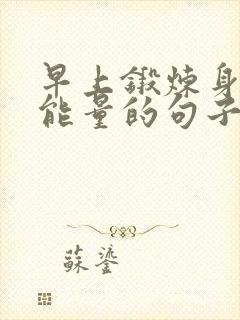 早上鍛炼身
能量的句子
蘇鎏